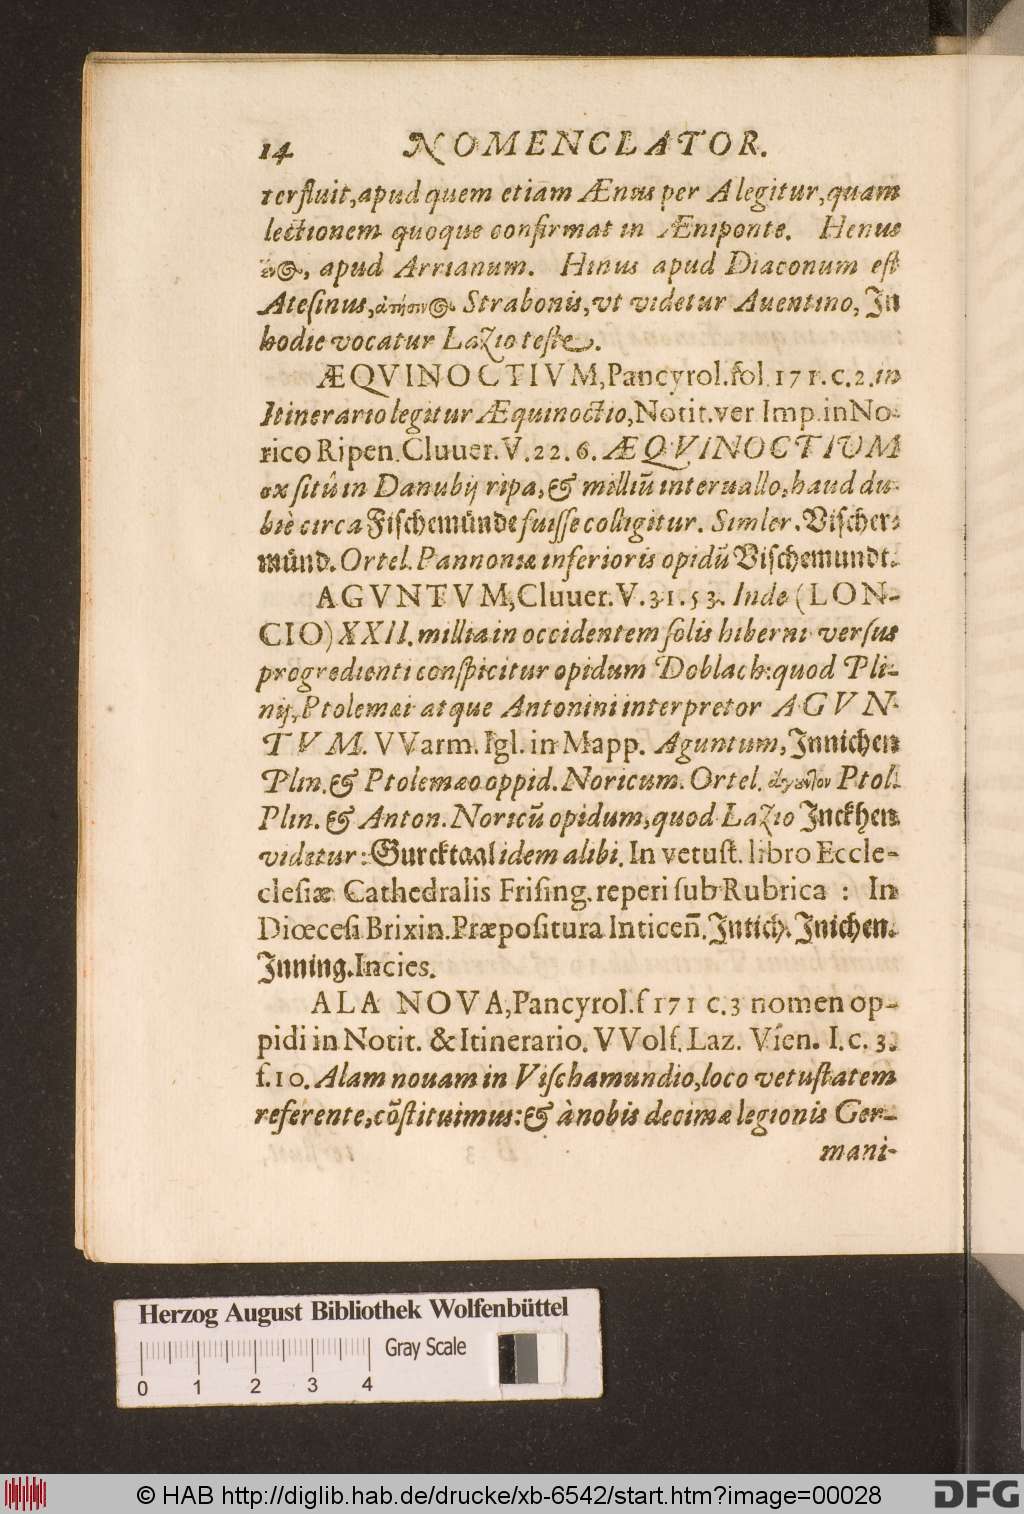 14 NOMENCLATOR.
terfluit, apud quem etiam Ænus per A legitur, quam
lectionem quoque confirmat in Æniponte. Henus
apud Arrianum. Hinus apud Diaconum est
Atesinus, Strabonis, vt videtur Auentino, In
hodie vocatur Lazio teste.
ÆQVINOCTIVM, Pancyrol. fol. 171. c. 2. in
Itinerario legitur Æquinoctio, Notit. ver Imp. in No-
rico Ripen. Cluuer. V. 22. 6. ÆQVINOCTIUM
ex sitû in Danubij ripa, & milliũ interuallo, haud du-
biè circa Fischemünde fuisse colligitur. Simler. Vischer-
münd. Ortel. Pannoniæ inferioris opidũ Vischemundt.
AGVNTVM, Cluuer. V. 31. 53. Inde (LON-
CIO) XXII. millia in occidentem solis hiberni versus
progredienti conspicitur opidum Doblach: quod Pli-
nij, Ptolemæi atque Antonini interpretor AGVN-
TVM. VVarm. Igl. in Mapp. Aguntum, Innichen
Plin. & Ptolemæo oppid. Noricum. Ortel. Ptol.
Plin. & Anton. Noricũ opidum, quod Lazio Inckhen
videtur: Gurcktaal idem alibi. In vetust. libro Eccle-
clesiæ Cathedralis Frising. reperi sub Rubrica : In
Diœcesi Brixin. Præpositura Inticen̄. Intich. Inichen.
Inning. Incies.
ALA NOVA, Pancyrol. f 171 c. 3 nomen op-
pidi in Notit. & Itinerario. VVolf. Laz. Vien. I. c. 3.
f. 10. Alam nouam in Vischamundio, loco vetustatem
referente, cõstituimus: & à nobis decimæ legionis Ger-
mani-
Herzog August Bibliothek Wolfenbüttel
Gray Scale
0 1 2 3 4
© HAB http://diglib.hab.de/drucke/xb-6542/start.htm?image=00028
DFG